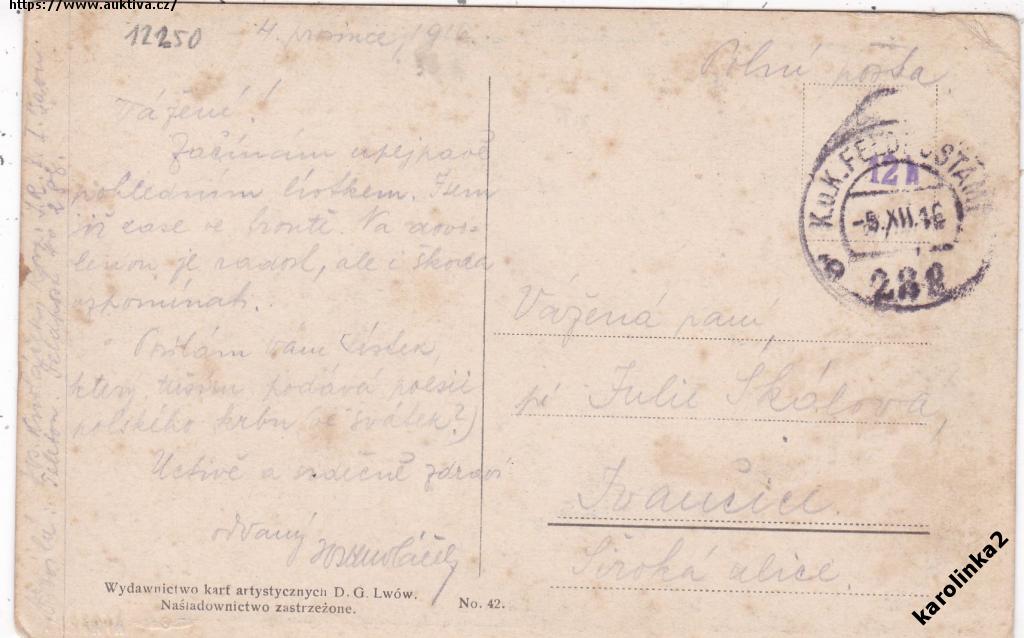 https://www.auktiva.cz/
12250
4. prosince, 1916.
Polní pošta
Vážení!
Začínám upejpavě
pohledním lístkem. Jsem
již zase ve frontě. Na dovo-
lenou je radost, ale i škoda
vzpomínat..
Posílám Vám lístek,
který tuším podává poesii
polského krbu (ve svátek?)
Uctivě a srdečně zdraví
oddaný
K.u.K. FELDPOSTAMT
12 h
-5.XII.16
288
Vážená paní,
pí Julie Skálová,
Ivančice.
Široká ulice.
Wydawnictwo kart artystycznych D. G. Lwów.
Naśladownictwo zastrzeżone.
No. 42.
karolinka2